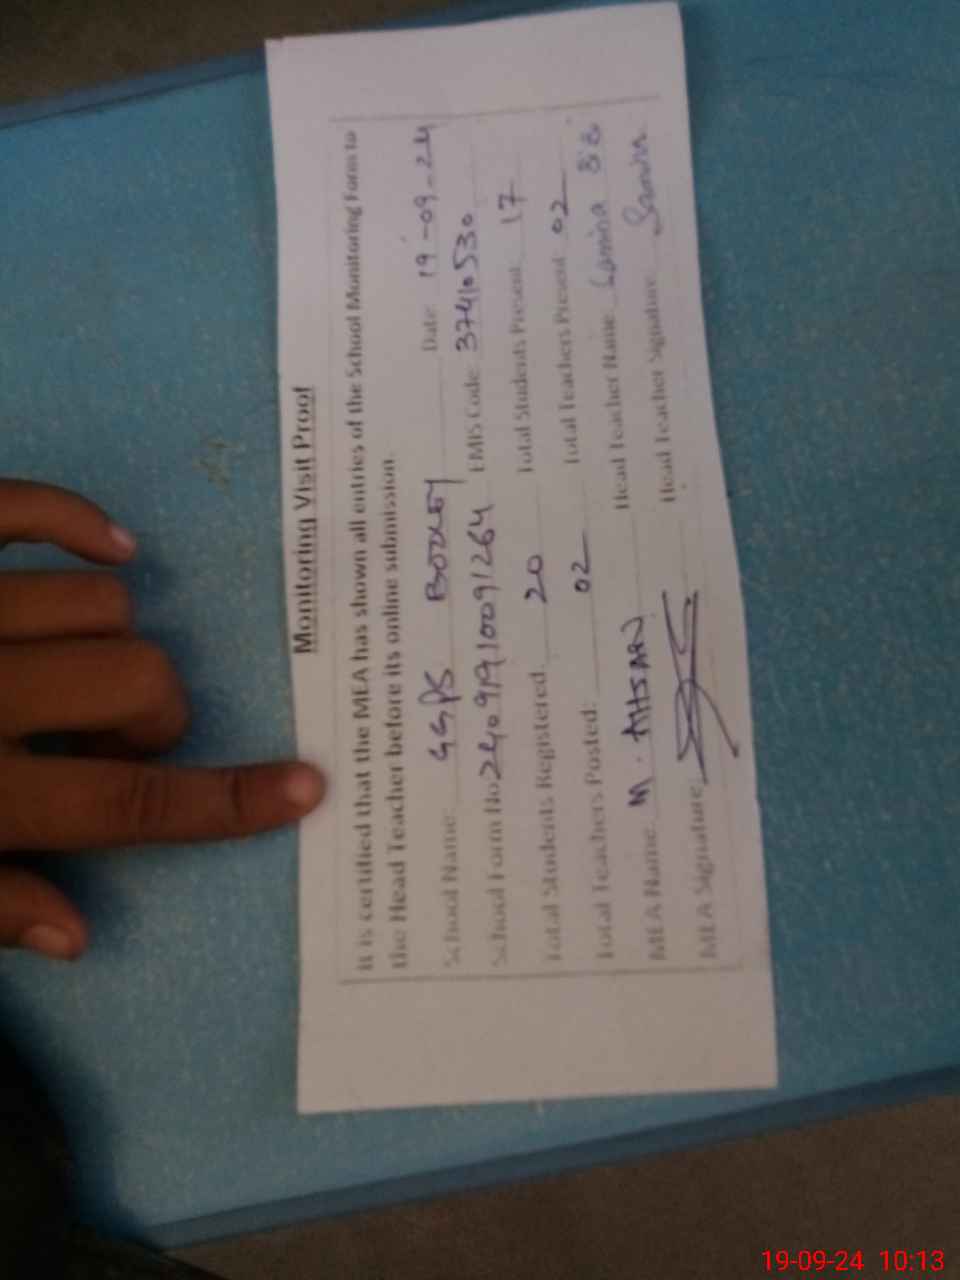 Monitoring Visit Proof
It is certified that the MEA has shown all entries of the School Monitoring Form to
the Head Teacher before its online submission.
School Name: GGPS Date: 19-09-24
School Form No: 24091910091264 EMIS Code: 37410530
Total Students Registered: 20 Total Students Present: 17
Total Teachers Posted: 02 Total Teachers Present: 02
MEA Name: M. AHSAN Head Teacher Name: Bibi
MEA Signature: Head Teacher Signature:
19-09-24 10:13